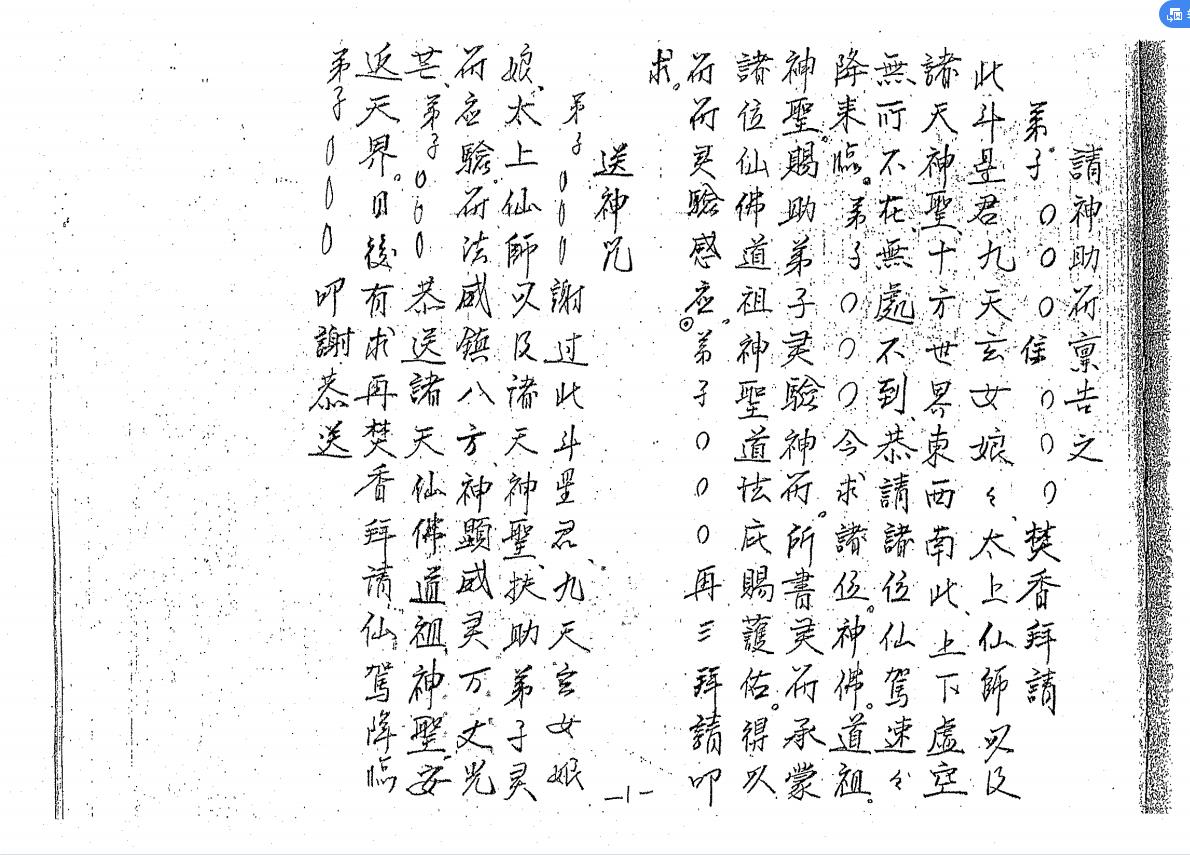 請神助符禀告之
弟子〇〇〇住〇〇〇焚香拜請
北斗星君、九天玄女娘々、太上仙師以及
諸天神聖、十方世界東西南北、上下虛空
無所不在、無處不到、恭請諸位仙駕速々
降來臨。弟子〇〇〇今求諸位。神佛。道祖。
神聖。賜助弟子灵驗神符。所書灵符承蒙
諸位仙佛道祖神聖道法庇賜護佑。得以
符符灵驗感应。弟子〇〇〇再三拜請叩
求。
送神咒
弟子〇〇〇謝过北斗星君、九天玄女娘
娘、太上仙師以及諸天神聖、扶助弟子灵
符应驗。符法威鎮八方、神顯威灵万丈光
芒、弟子〇〇〇恭送諸天仙佛道祖神聖安
返天界。日後有求再焚香拜請仙駕降臨
弟子〇〇〇叩謝恭送
-1-